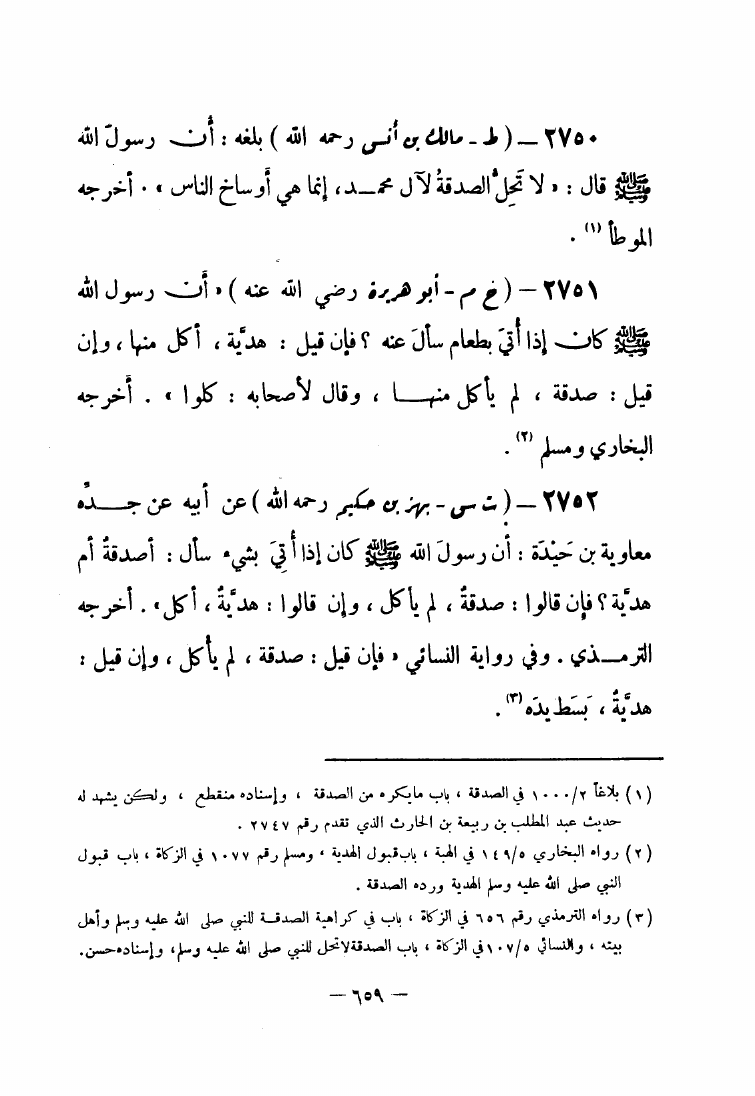 ٢٧٥٠ – ( ط - مالك بن أنس رحمه الله ) بلغه : أن رسولَ الله
ﷺ قال : « لا تَحِلُّ الصدقةُ لآل محمـد، إنما هي أَوساخ الناس » . أخرجه
الموطأ (١) .
٢٧٥١ – ( خ م - أبو هريرة رضي الله عنه ) « أَن رسول الله
ﷺ كان إذا أُتيَ بطعام سألَ عنه ؟ فإن قيل : هديَّة ، أكل منها ، وإن
قيل : صدقة ، لم يأكل منهـا ، وقال لأصحابه : كلوا » . أخرجه
البخاري ومسلم (٢) .
٢٧٥٢ – ( ت س - بهز بن حكيم رحمه الله ) عن أبيه عن جـدِّه
معاوية بن حَيْدَة : أن رسولَ الله ﷺ كان إذا أُتيَ بشيء سأل : أصدقةٌ أم
هديَّة ؟ فإن قالوا : صدقةٌ ، لم يأكل ، وإن قالوا : هديَّةٌ ، أكل » . أخرجه
الترمـذي . وفي رواية النسائي « فإن قيل : صدقة ، لم يأْكل ، وإن قيل :
هديَّةٌ ، بَسَط يدَه (٣) .
(١) بلاغاً ١٠٠٠/٢ في الصدقة ، باب مايكره من الصدقة ، وإسناده منقطع ، ولكن يشهد له
حديث عبد المطلب بن ربيعة بن الحارث الذي تقدم رقم ٢٧٤٧ .
(٢) رواه البخاري ١٤٩/٥ في الهبة ، باب قبول الهدية ، ومسلم رقم ١٠٧٧ في الزكاة ، باب قبول
النبي صلى الله عليه وسلم الهدية ورده الصدقة .
(٣) رواه الترمذي رقم ٦٥٦ في الزكاة ، باب في كراهية الصدقـة للنبي صلى الله عليه وسلم وأهل
بيته ، والنسائي ١٠٧/٥ في الزكاة ، باب الصدقة لاتحل للنبي صلى الله عليه وسلم، وإسناده حسن.
– ٦٥٩ –